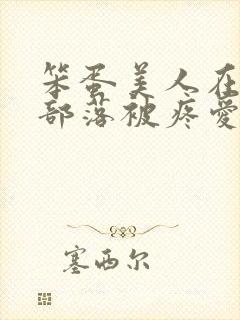 笨蛋美人在
部落被疼爱
塞西尔